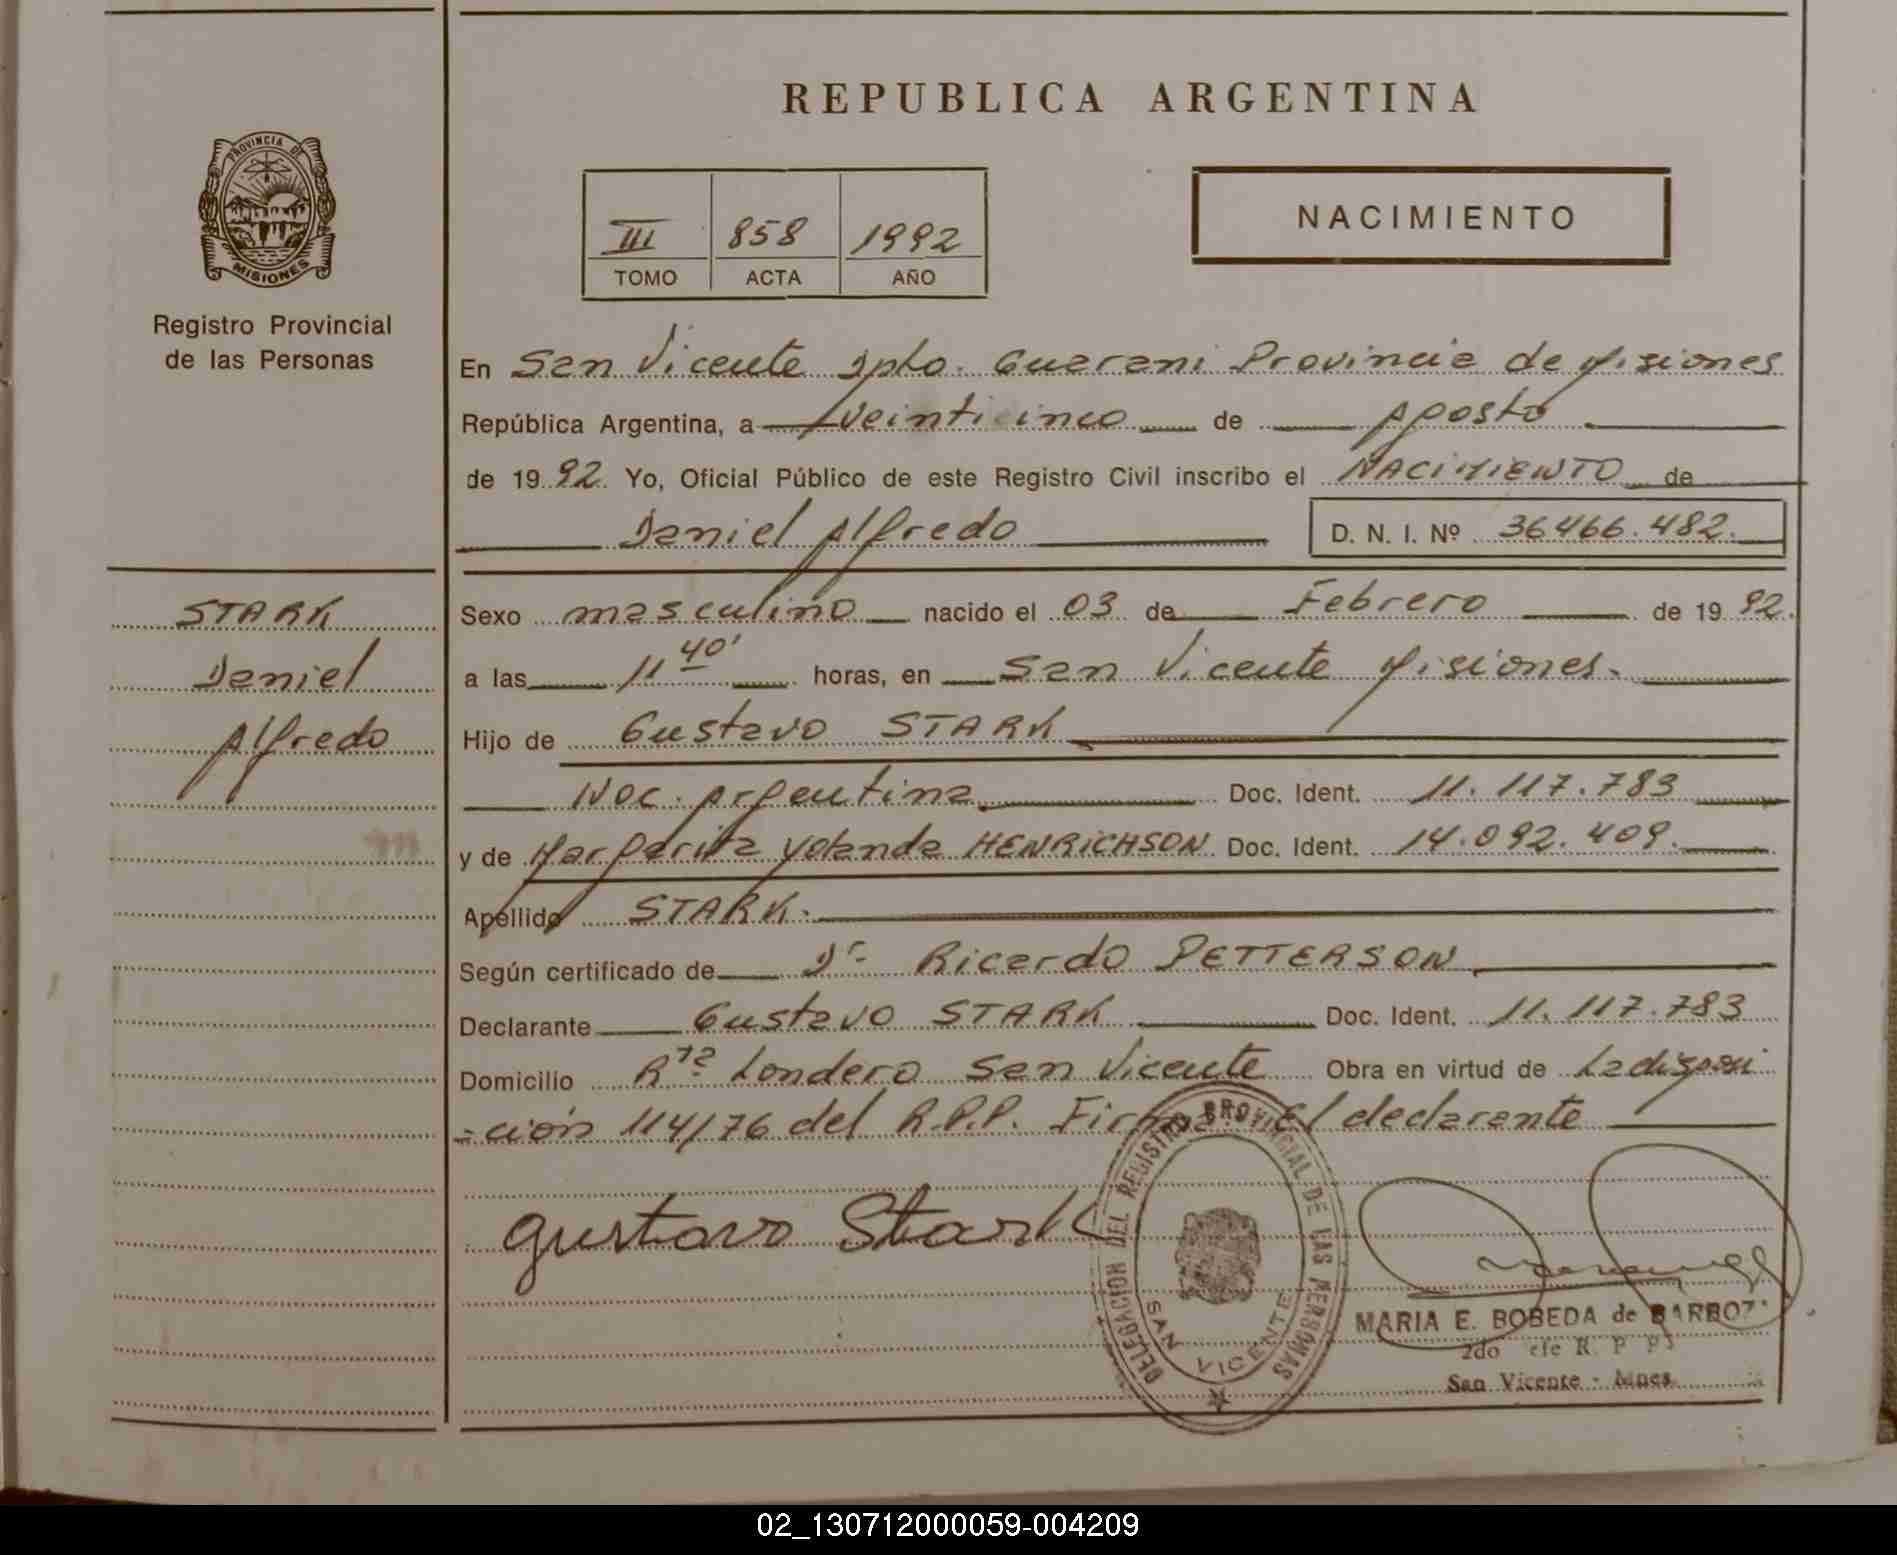 REPUBLICA ARGENTINA
PROVINCIA DE
MISIONES
Registro Provincial
de las Personas
III 858 1992
TOMO ACTA AÑO
NACIMIENTO
En San Vicente Dpto. Guarani Provincia de Misiones
República Argentina, a veinticinco de Agosto
de 1992. Yo, Oficial Público de este Registro Civil inscribo el NACIMIENTO de
Daniel Alfredo D. N. I. Nº 36.466.482.
STARK
Daniel
Alfredo
Sexo masculino nacido el 03 de Febrero de 1992.
a las 11 40' horas, en San Vicente Misiones.
Hijo de Gustavo STARK
Nac. Argentina Doc. Ident. 11.117.783
y de Margarita Yolanda HENRICHSON Doc. Ident. 14.092.409.
Apellido STARK.
Según certificado de Dr. Ricardo PETTERSON
Declarante Gustavo STARK Doc. Ident. 11.117.783
Domicilio Rta Londero San Vicente Obra en virtud de La disposi
-ción 114/76 del R.P.P. Firma: El declarante
Gustavo Stark
DELEGACION DEL REGISTRO PROVINCIAL DE LAS PERSONAS
SAN VICENTE
MARIA E. BOBEDA de BARBOZ
2do efe R. P P
San Vicente - Mnes
02_130712000059-004209